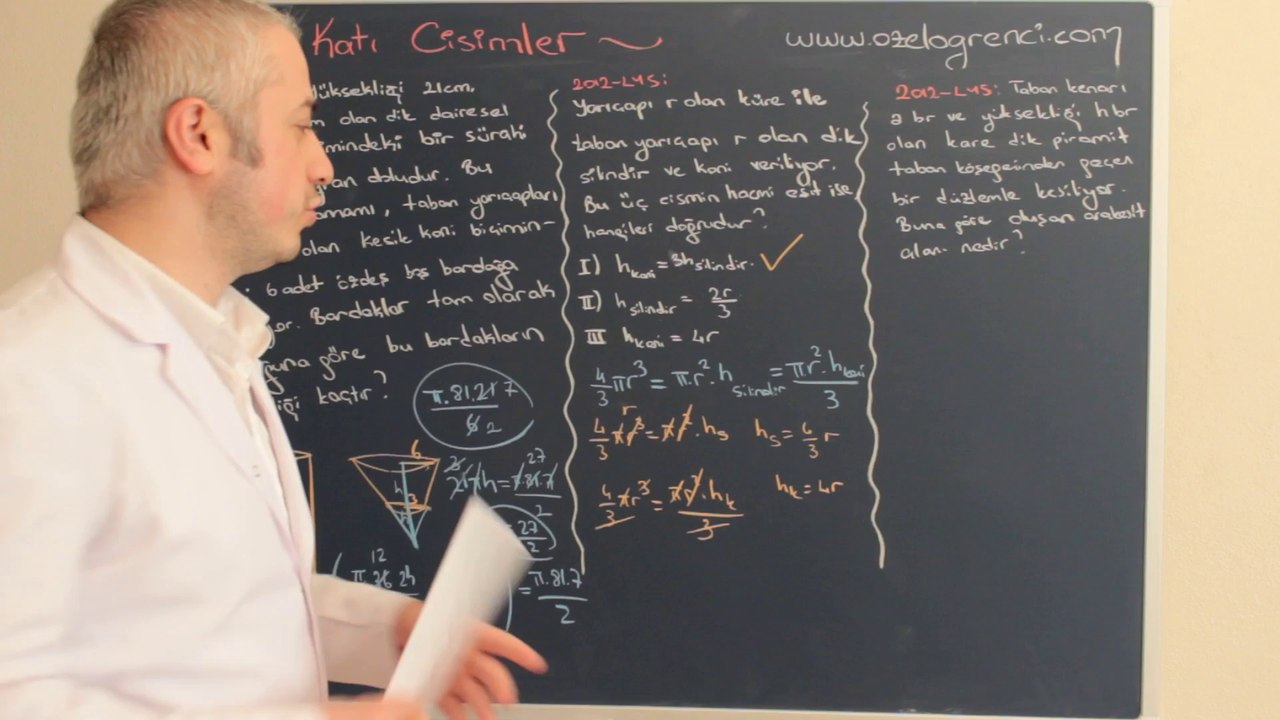 Katı Cisimler
www.ozelogrenci.com
yüksekliği 21cm,
olan dik dairesel
bir sürahi
doludur. Bu
taban yarıçapları
olan kesik koni biçimin-
6 adet özdeş boş bardağa
Bardaklar tam olarak
göre bu bardakların
kaçtır?
π.81.21 7
6 2
6
h
3
2
21πh = π.81.7
27
2
27
2
12
π.36.2h
= π.81.7
2
2012-LYS:
Yarıçapı r olan küre ile
taban yarıçapı r olan dik
silindir ve koni veriliyor.
Bu üç cismin hacmi eşit ise
hangileri doğrudur?
I) hkoni = 3hsilindir. ✓
II) hsilindir = 2r/3
III hkoni = 4r
4/3 πr³ = π.r².hsilindir = π.r².hkoni/3
4/3 πr³ = πr².hs hs = 4/3 r
4/3 πr³ = πr².hk/3 hk = 4r
2012-LYS: Taban kenarı
a br ve yüksekliği h br
olan kare dik piramit
taban köşegeninden geçen
bir düzlemle kesiliyor.
Buna göre oluşan arakesit
alanı nedir?